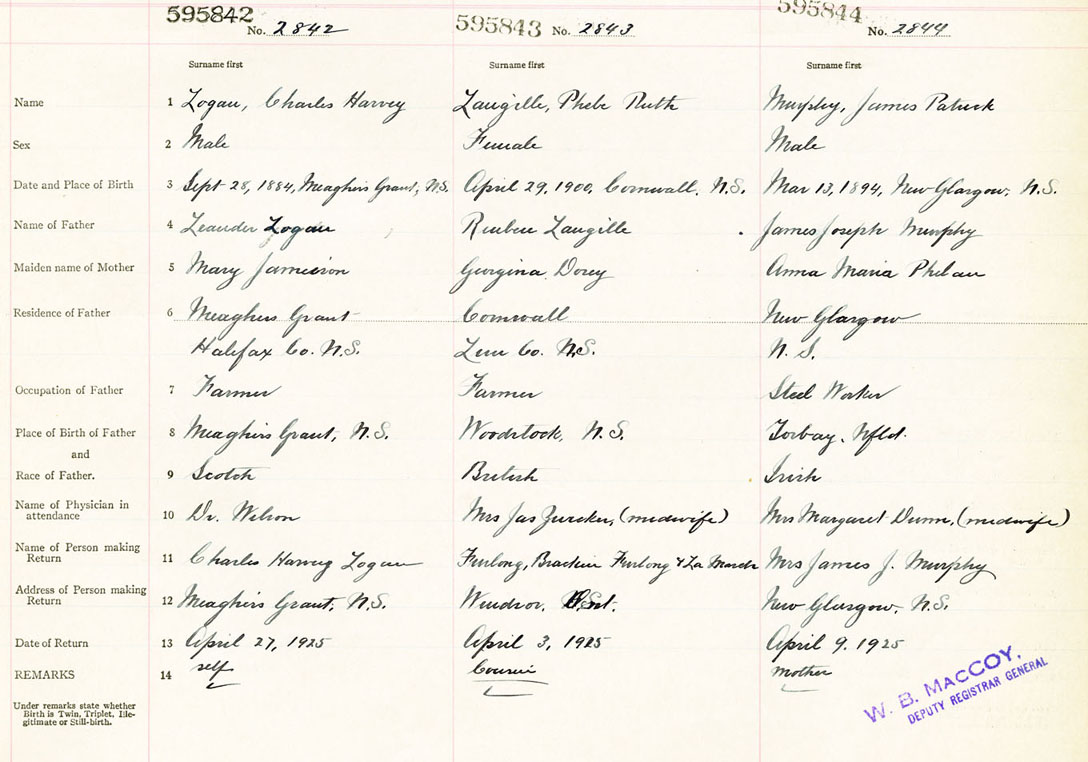 595842 No. 2842 595843 No. 2843 595844 No. 2844
Surname first Surname first Surname first
Name 1 Logan, Charles Harvey Langille, Phebe Ruth Murphy, James Patrick
Sex 2 Male Female Male
Date and Place of Birth 3 Sept 28, 1884, Meaghers Grant, N.S. April 29, 1900, Cornwall, N.S. Mar 13, 1894, New Glasgow, N.S.
Name of Father 4 Leander Logan Reuben Langille James Joseph Murphy
Maiden name of Mother 5 Mary Jamieson Georgina Dorey Anna Maria Phelan
Residence of Father 6 Meaghers Grant Cornwall New Glasgow
Halifax Co. N.S. Lun Co. N.S. N.S.
Occupation of Father 7 Farmer Farmer Steel Worker
Place of Birth of Father 8 Meaghers Grant, N.S. Woodstock, N.S. Torbay, Nfld.
and
Race of Father. 9 Scotch British Irish
Name of Physician in
attendance 10 Dr. Wilson Mrs Jas (midwife) Mrs Margaret Dunn, (midwife)
Name of Person making
Return 11 Charles Harvey Logan Furlong, Furlong & La Marsh Mrs James J. Murphy
Address of Person making
Return 12 Meaghers Grant, N.S. Windsor, Ont. New Glasgow, N.S.
Date of Return 13 April 27, 1925 April 3, 1925 April 9. 1925
REMARKS 14 self Cousin mother
Under remarks state whether
Birth is Twin, Triplet, Ille-
gitimate or Still-birth.
W. B. MACCOY,
DEPUTY REGISTRAR GENERAL